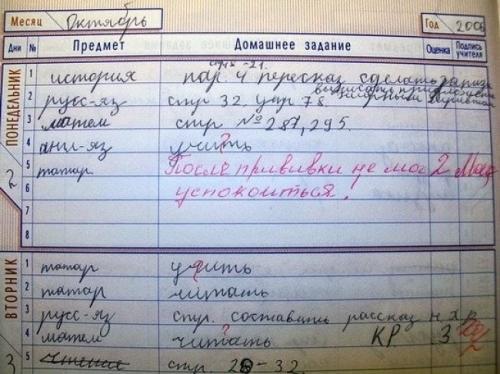 Месяц Октябрь Год 2006
Дни № Предмет Домашнее задание Оценка Подпись учителя
ПОНЕДЕЛЬНИК 2
1 история пар. 4 пересказ сделать
2 русс-яз стр 32. упр 78.
3 матем стр №287, 295.
4 англ-яз учить
5 татар После прививки не мог 2
6 успокоиться!
7
8
ВТОРНИК 3
1 татар учить
2 татар читать
3 русс-яз стр. составить рассказ
4 матем читать КР 3
5 чтение стр. 28-32.